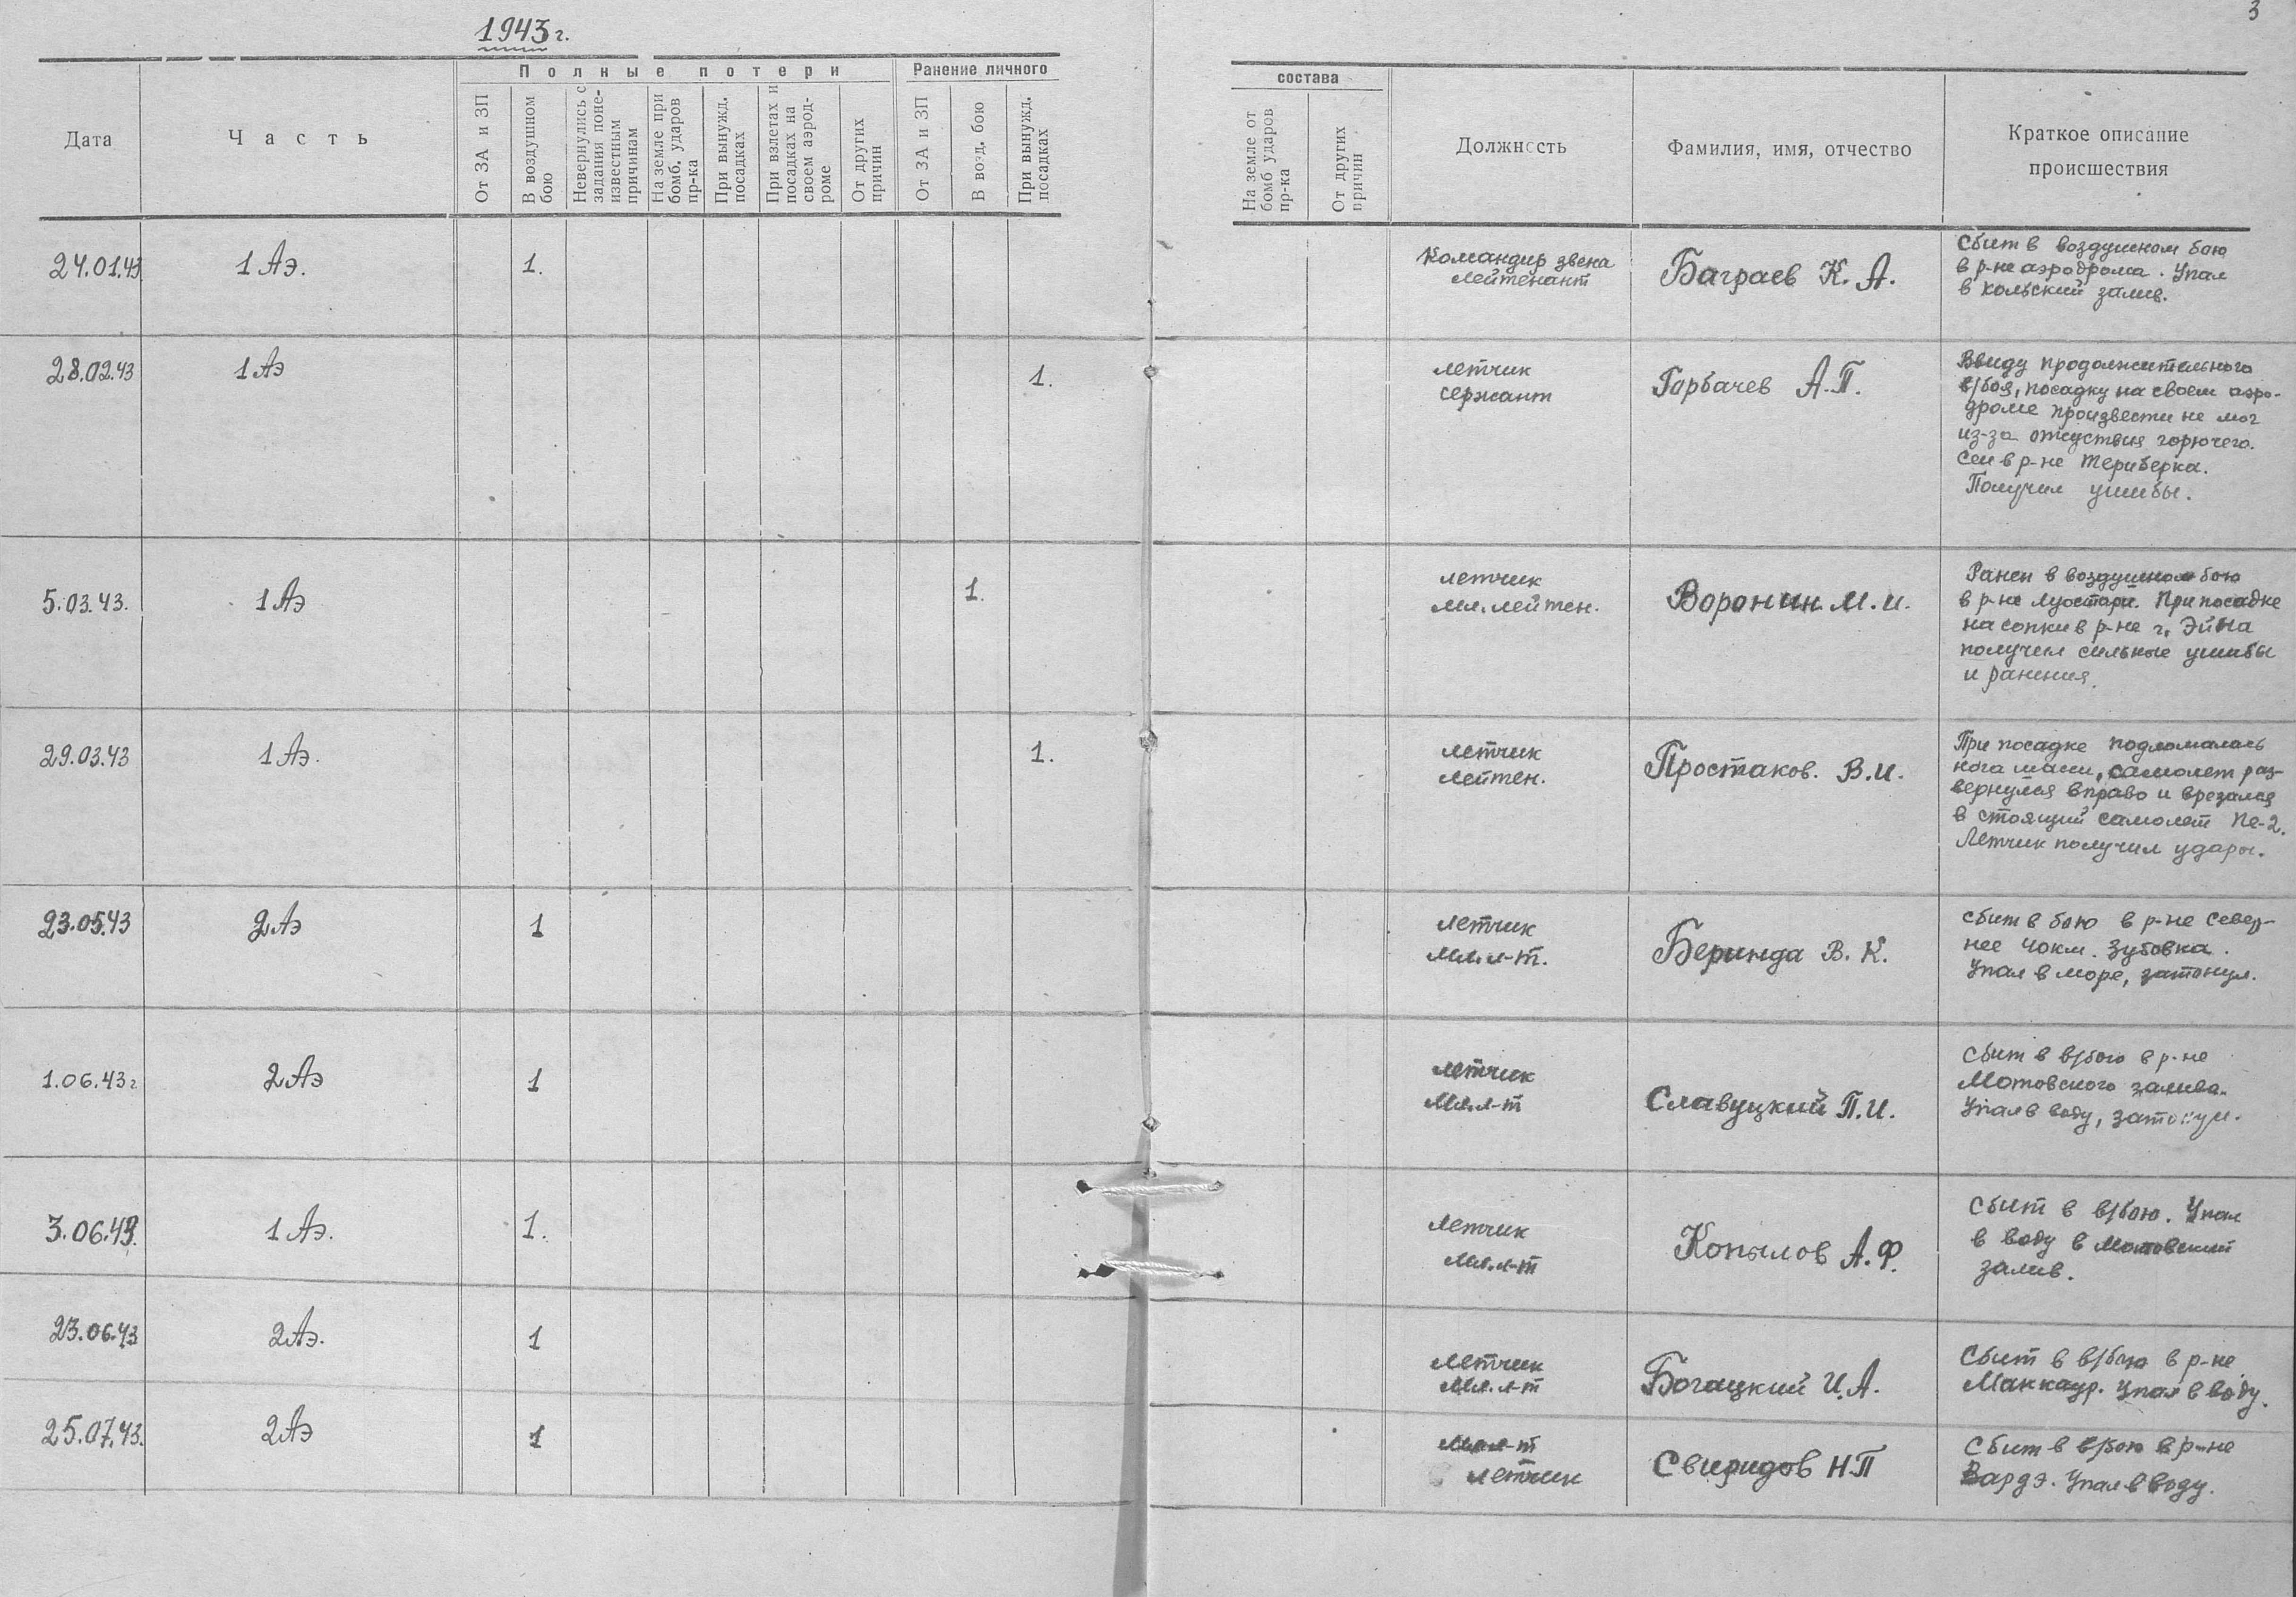 1943 г.
3
Полные потери
Ранение личного
состава
Дата
Часть
От ЗА и ЗП
В воздушном
бою
Невернулись с
задания поне-
известным
причинам
На земле при
бомб. ударов
пр-ка
При вынужд.
посадках
При взлетах и
посадках на
своем аэрод-
роме
От других
причин
От ЗА и ЗП
В возд. бою
При вынужд.
посадках
На земле от
бомб ударов
пр-ка
От других
причин
Должность
Фамилия, имя, отчество
Краткое описание
происшествия
24.01.43 1 Аэ. 1.
Командир звена
лейтенант
Баграев К. А.
Сбит в воздушном бою
в р-не аэродрома. Упал
в Кольский залив.
28.02.43 1 Аэ 1.
летчик
сержант
Горбачев А.П.
Ввиду продолжительного
в/боя, посадку на своем аэро-
дроме произвести не мог
из-за отсуствия горючего.
Сел в р-не Териберка.
Получил ушибы.
5.03.43. 1 Аэ 1.
летчик
мл. лейтен.
Воронин М.И.
Ранен в воздушном бою
в р-не Луостари. При посадке
на сопки в р-не г. Эйна
получил сильные ушибы
и ранения.
29.03.43 1 Аэ. 1.
летчик
лейтен.
Простаков. В.И.
При посадке подломалась
нога шасси, самолет раз-
вернулся вправо и врезался
в стоящий самолет Пе-2.
Летчик получил удары.
23.05.43 2 Аэ 1
летчик
мл. л-т.
Беринда В. К.
Сбит в бою в р-не север-
нее 40км. Зубовка.
Упал в море, затонул.
1.06.43 г 2 Аэ 1
летчик
мл. л-т
Славуцкий П.И.
Сбит в в/бою в р-не
Мотовского залива.
Упал в воду, затонул.
3.06.43. 1 Аэ. 1.
летчик
мл. л-т
Копылов А.Ф.
Сбит в в/бою. Упал
в воду в Мотовский
залив.
23.06.43 2 Аэ. 1
летчик
мл. л-т
Богацкий И.А.
Сбит в в/бою в р-не
Маккаур. Упал в воду.
25.07.43. 2 Аэ 1
мл л-т
летчик
Свиридов Н П
Сбит в в/бою в р-не
Вардэ. Упал в воду.